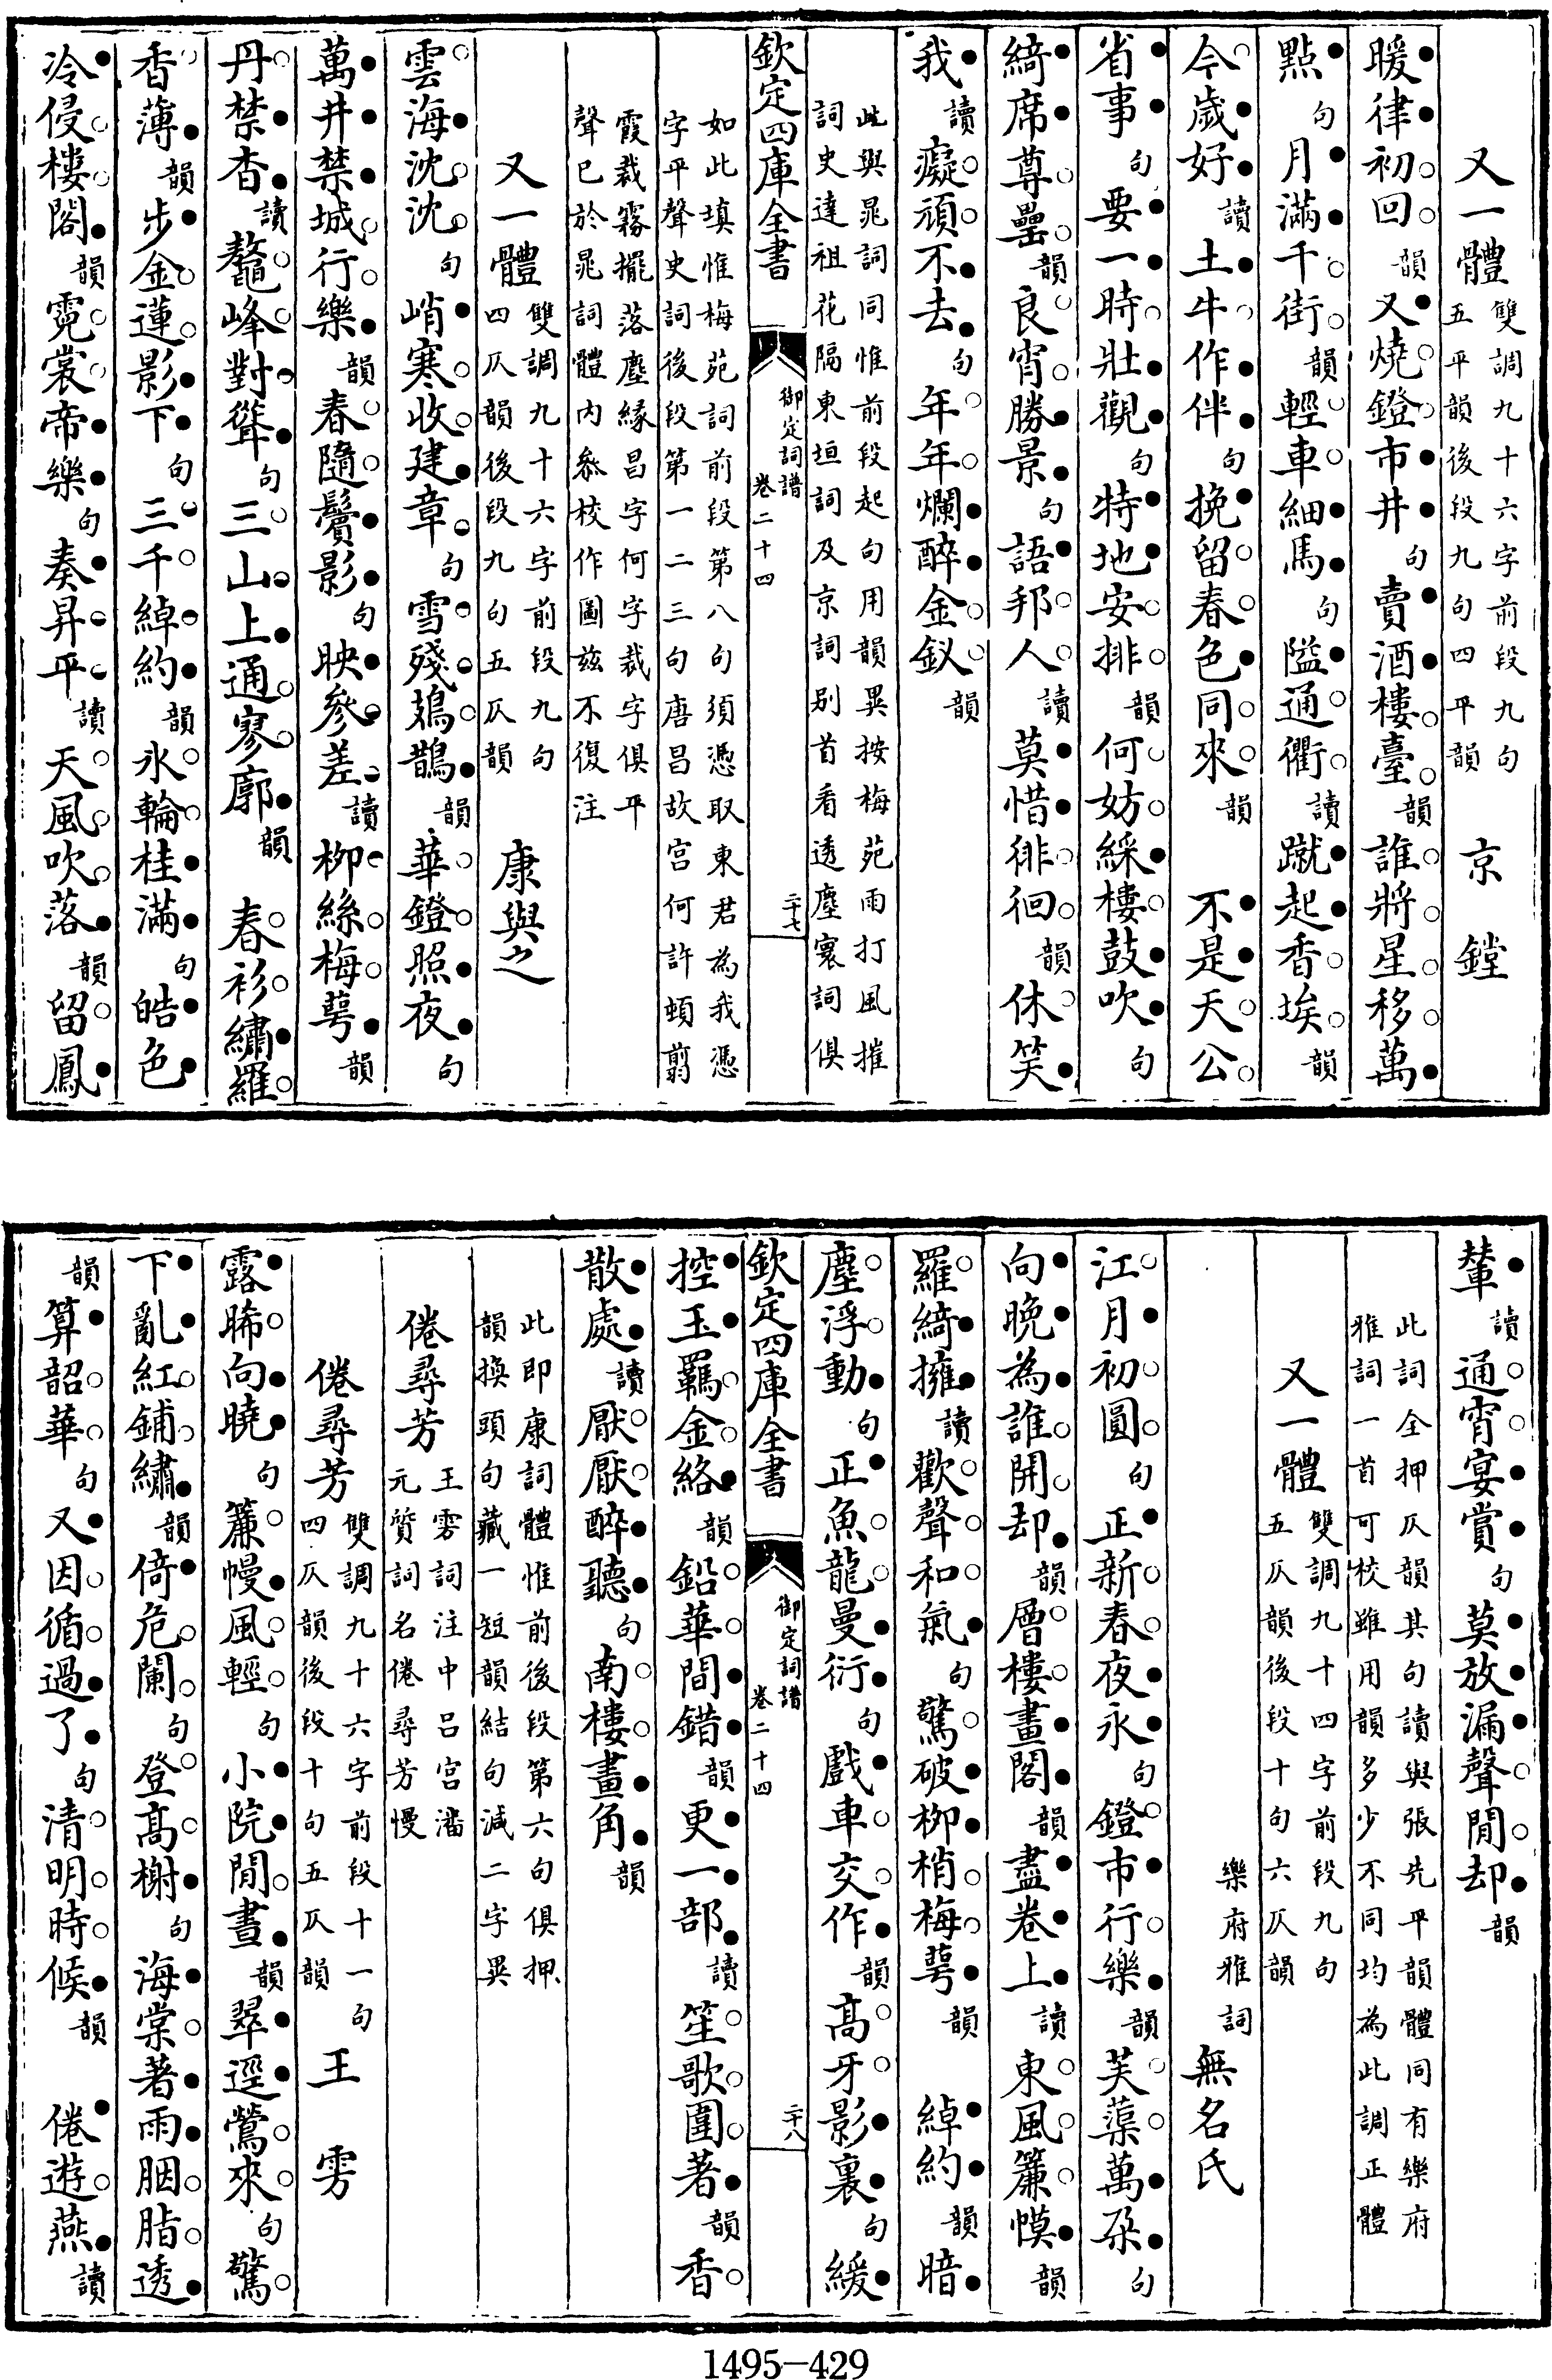 又一體雙調九十六字前段九句五平韻後段九句四平韻 京鏜
暖律初回韻又燒鐙市井句賣酒樓臺韻誰將星移萬
點句月滿千街韻輕車細馬句隘通衢讀蹴起香埃韻
今歲好讀土牛作伴句挽留春色同來韻 不是天公
省事句要一時壯觀句特地安排韻何妨綵樓鼓吹句
綺席尊罍韻良宵勝景句語邦人讀莫惜徘徊韻休笑
我讀癡頑不去句年年爛醉金釵韻
此與晁詞同惟前段起句用韻異按梅苑雨打風摧
詞史達祖花隔東垣詞及京詞别首看透塵寰詞俱
欽定四庫全書 御定詞譜卷二十四 二十七
如此填惟梅苑詞前段第八句須憑取東君為我憑
字平聲史詞後段第一二三句唐昌故宫何許頓翦
霞裁霧擺落塵緣昌字何字裁字俱平
聲已於晁詞體內叅校作圖兹不復注
又一體雙調九十六字前段九句四仄韻後段九句五仄韻 康與之
雲海沈沈句峭寒收建章句雪殘鳷鵲韻華鐙照夜句
萬井禁城行樂韻春隨鬢影句映參差讀柳絲梅萼韻
丹禁杳讀鼇峰對聳句三山上通寥廓韻 春衫繡羅
香薄韻步金蓮影下句三千綽約韻氷輪桂滿句皓色
冷侵樓閣韻霓裳帝樂句奏昇平讀天風吹落韻留鳳
輦讀通宵宴賞句莫放漏聲閒却韻
此詞全押仄韻其句讀與張先平韻體同有樂府
雅詞一首可校雖用韻多少不同均為此調正體
又一體雙調九十四字前段九句五仄韻後段十句六仄韻
樂府雅詞無名氏
江月初圓句正新春夜永句鐙市行樂韻芙蕖萬朶句
向晚為誰開却韻層樓畫閣韻盡卷上讀東風簾幙韻
羅綺擁讀歡聲和氣句驚破柳梢梅萼韻 綽約韻暗
塵浮動句正魚龍曼衍句戲車交作韻高牙影裏句緩
欽定四庫全書 御定詞譜卷二十四 二十八
控玉羈金絡韻鉛華間錯韻更一部讀笙歌圍著韻香
散處讀厭厭醉聽句南樓畫角韻
此即康詞體惟前後段第六句俱押
韻換頭句藏一短韻結句減二字異
倦尋芳王雱詞注中呂宫潘元質詞名倦尋芳慢
倦尋芳雙調九十六字前段十一句四仄韻後段十句五仄韻 王雱
露晞向曉句簾幔風輕句小院閒晝韻翠逕鶯來句驚
下亂紅鋪繡韻倚危闌句登高榭句海棠著雨胭脂透
韻算韶華句又因循過了句清明時候韻 倦遊燕讀
1495-429